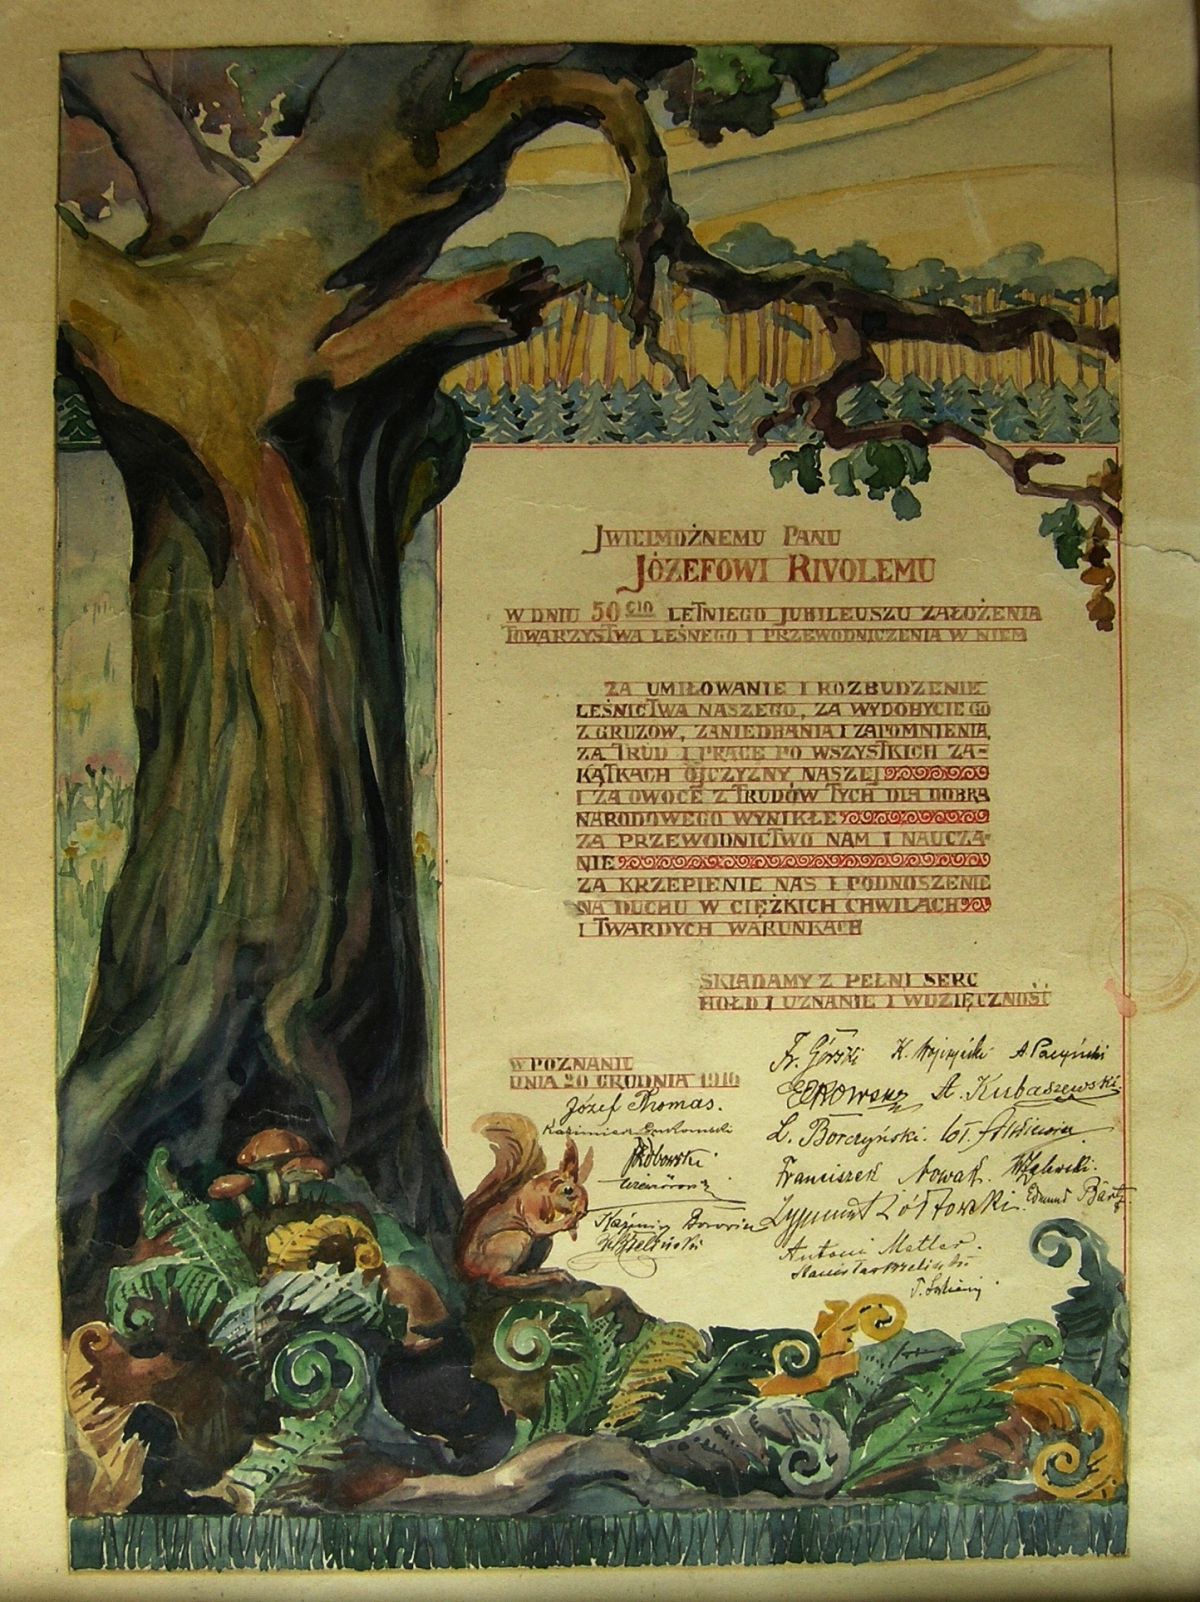 JWIELMOŻNEMU PANU
JÓZEFOWI RIVOLEMU
W DNIU 50 CIO LETNIEGO JUBILEUSZU ZAŁOŻENIA
TOWARZYSTWA LEŚNEGO I PRZEWODNICZENIA W NIEM
ZA UMIŁOWANIE I ROZBUDZENIE
LEŚNICTWA NASZEGO, ZA WYDOBYCIE GO
Z GRUZÓW, ZANIEDBANIA I ZAPOMNIENIA,
ZA TRUD I PRACĘ PO WSZYSTKICH ZA-
KĄTKACH OJCZYZNY NASZEJ
I ZA OWOCE Z TRUDÓW TYCH DLA DOBRA
NARODOWEGO WYNIKŁE
ZA PRZEWODNICTWO NAM I NAUCZA-
NIE
ZA KRZEPIENIE NAS I PODNOSZENIE
NA DUCHU W CIĘŻKICH CHWILACH
I TWARDYCH WARUNKACH
SKŁADAMY Z PEŁNI SERC
HOŁD I UZNANIE I WDZIĘCZNOŚĆ
W POZNANIU
DNIA 20 GRUDNIA
Józef Thomas.
Kazimierz
Fr. Górski K.
A. Kubaszewski.
L. Borczyński.
Franciszek Nowak.
Zygmunt Żółtowski. Edmund
Antoni Metler.
Stanisław